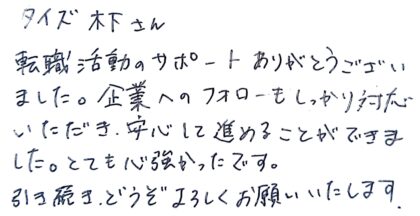 タイズ 木下さん
転職活動のサポートありがとうござい
ました。企業へのフォローもしっかり対応
いただき、安心して進めることができま
した。とても心強かったです。
引き続き、どうぞよろしくお願いいたします。